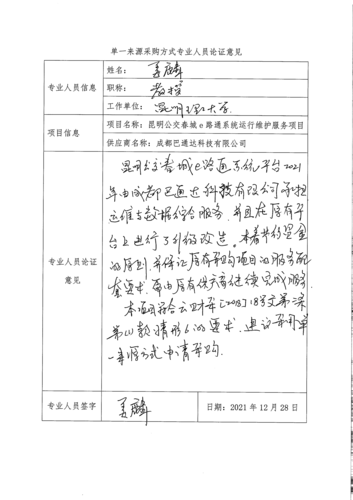 单一来源采购方式专业人员论证意见
专业人员信息
姓名：姜麟
职称：教授
工作单位：昆明理工大学
项目信息
项目名称：昆明公交春城e路通系统运行维护服务项目
供应商名称：成都巴通达科技有限公司
专业人员论证
意见
昆明公交春城e路通系统平台2021
年由成都巴通达科技有限公司承担
运维与数据综合服务，并且在原有平
台上进行了升级改造。本着节约资金
的原则，并保证原有采购项目的服务配
套要求，需由原有供应商继续完成服务。
本项目符合云财采[2018]18号文第
第 款情形 的要求，建议采用单
一来源方式申请采购。
专业人员签字
姜麟
日期：2021年12月28日